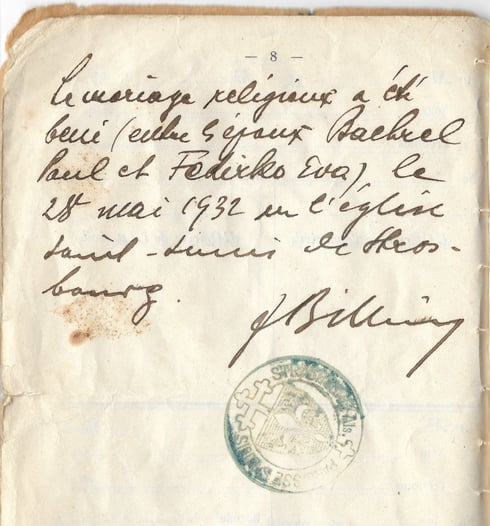 — 8 —
Le mariage religieux a été
béni (entre époux Baehrel
Paul et Fedirko Eva) le
28 mai 1932 en l'église
saint-Louis de Stras-
bourg.
J Billing
STR Als.
PAROISSE S LOUIS